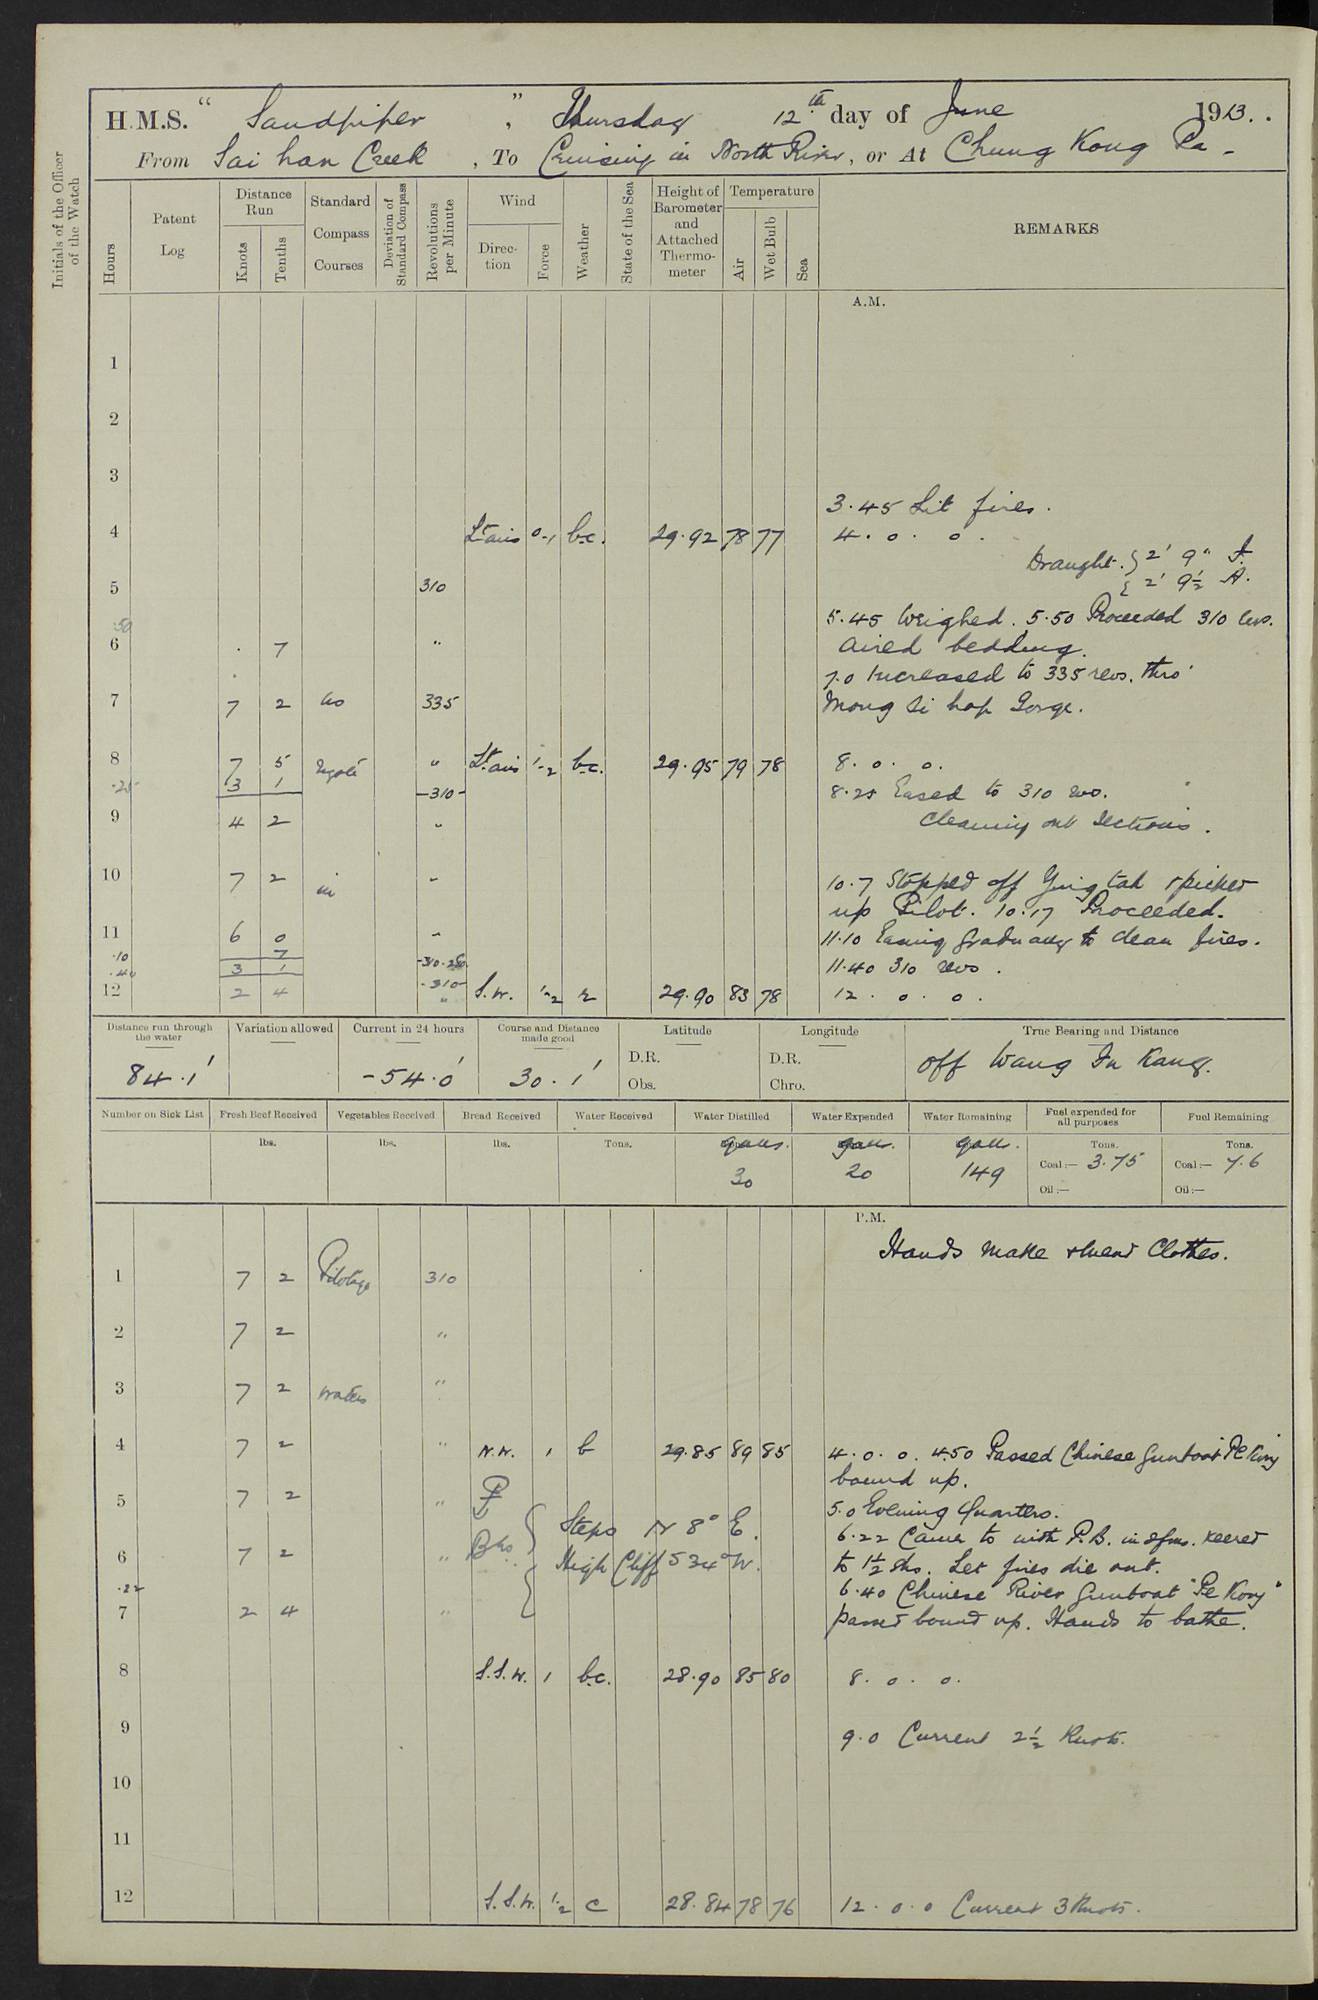 H.M.S. " Sandpiper ", Thursday 12th day of June 1913.
From Sai han Creek, To Cruising in North River, or At Chung Kong Pa -
Initials of the Officer of the Watch
Hours
Patent Log
Distance Run
Knots
Tenths
Standard Compass Courses
Deviation of Standard Compass
Revolutions per Minute
Wind
Direction
Force
Weather
State of the Sea
Height of Barometer and Attached Thermometer
Temperature
Air
Wet Bulb
Sea
REMARKS
A.M.
1
2
3
3.45 Lit fires.
4 Lt airs 0-1 b.c. 29.92 78 77 4 . 0 . 0 .
Draught. } 2' 9" F.
{ 2' 9½ A.
5 310
.50 5.45 Weighed. 5.50 Proceeded 310 revs.
6 . 7 " Aired bedding.
7.0 Increased to 335 revs. thro'
7 7 2 335 Mong Si hap Gorge.
8 7 5 " Lt airs 1-2 b.c. 29.95 79 78 8 . 0 . 0 .
.25 3 1 -310- 8.25 Eased to 310 revs.
9 4 2 " Cleaning out Sections.
10 7 2 in " 10.7 Stopped off Ying tak & picked
up Pilot. 10.17 Proceeded.
11 6 0 " 11.10 Easing gradually to clean fires.
.10 7 -310.280
.40 3 1 -310- 11.40 310 revs.
12 2 4 " S.W. 1-2 r 29.90 83 78 12 . 0 . 0 .
Distance run through the water
Variation allowed
Current in 24 hours
Course and Distance made good
Latitude
Longitude
True Bearing and Distance
84.1'
-54.0'
30.1'
D.R.
Obs.
D.R.
Chro.
off Wang Fu Kang.
Number on Sick List
Fresh Beef Received
Vegetables Received
Bread Received
Water Received
Water Distilled
Water Expended
Water Remaining
Fuel expended for all purposes
Fuel Remaining
lbs. lbs. lbs. Tons. galls. galls. galls. Tons. Tons.
30 20 149 Coal:— 3.75 Coal:— 7.6
Oil:— Oil:—
P.M.
Hands make & mend Clothes.
1 7 2 Pilotage 310
2 7 2 "
3 7 2 waters "
4 7 2 " N.W. 1 b 29.85 89 85 4 . 0 . 0 . 4.50 Passed Chinese Gunboat Pe Kong
bound up.
5 7 2 " 5.0 Evening Quarters.
Brgs { Steps N 8° E. 6.22 Came to with P.B. in 2 fms. veered
6 7 2 " High Cliff S 34° W. to 1½ shs. Let fires die out.
.22 6.40 Chinese River Gunboat "Pe Kong"
7 2 4 " passed bound up. Hands to bathe.
8 S.S.W. 1 b.c. 28.90 85 80 8 . 0 . 0 .
9 9.0 Current 2½ Knots.
10
11
12 S.S.W. 1-2 c 28.84 78 76 12 . 0 . 0 Current 3 Knots.